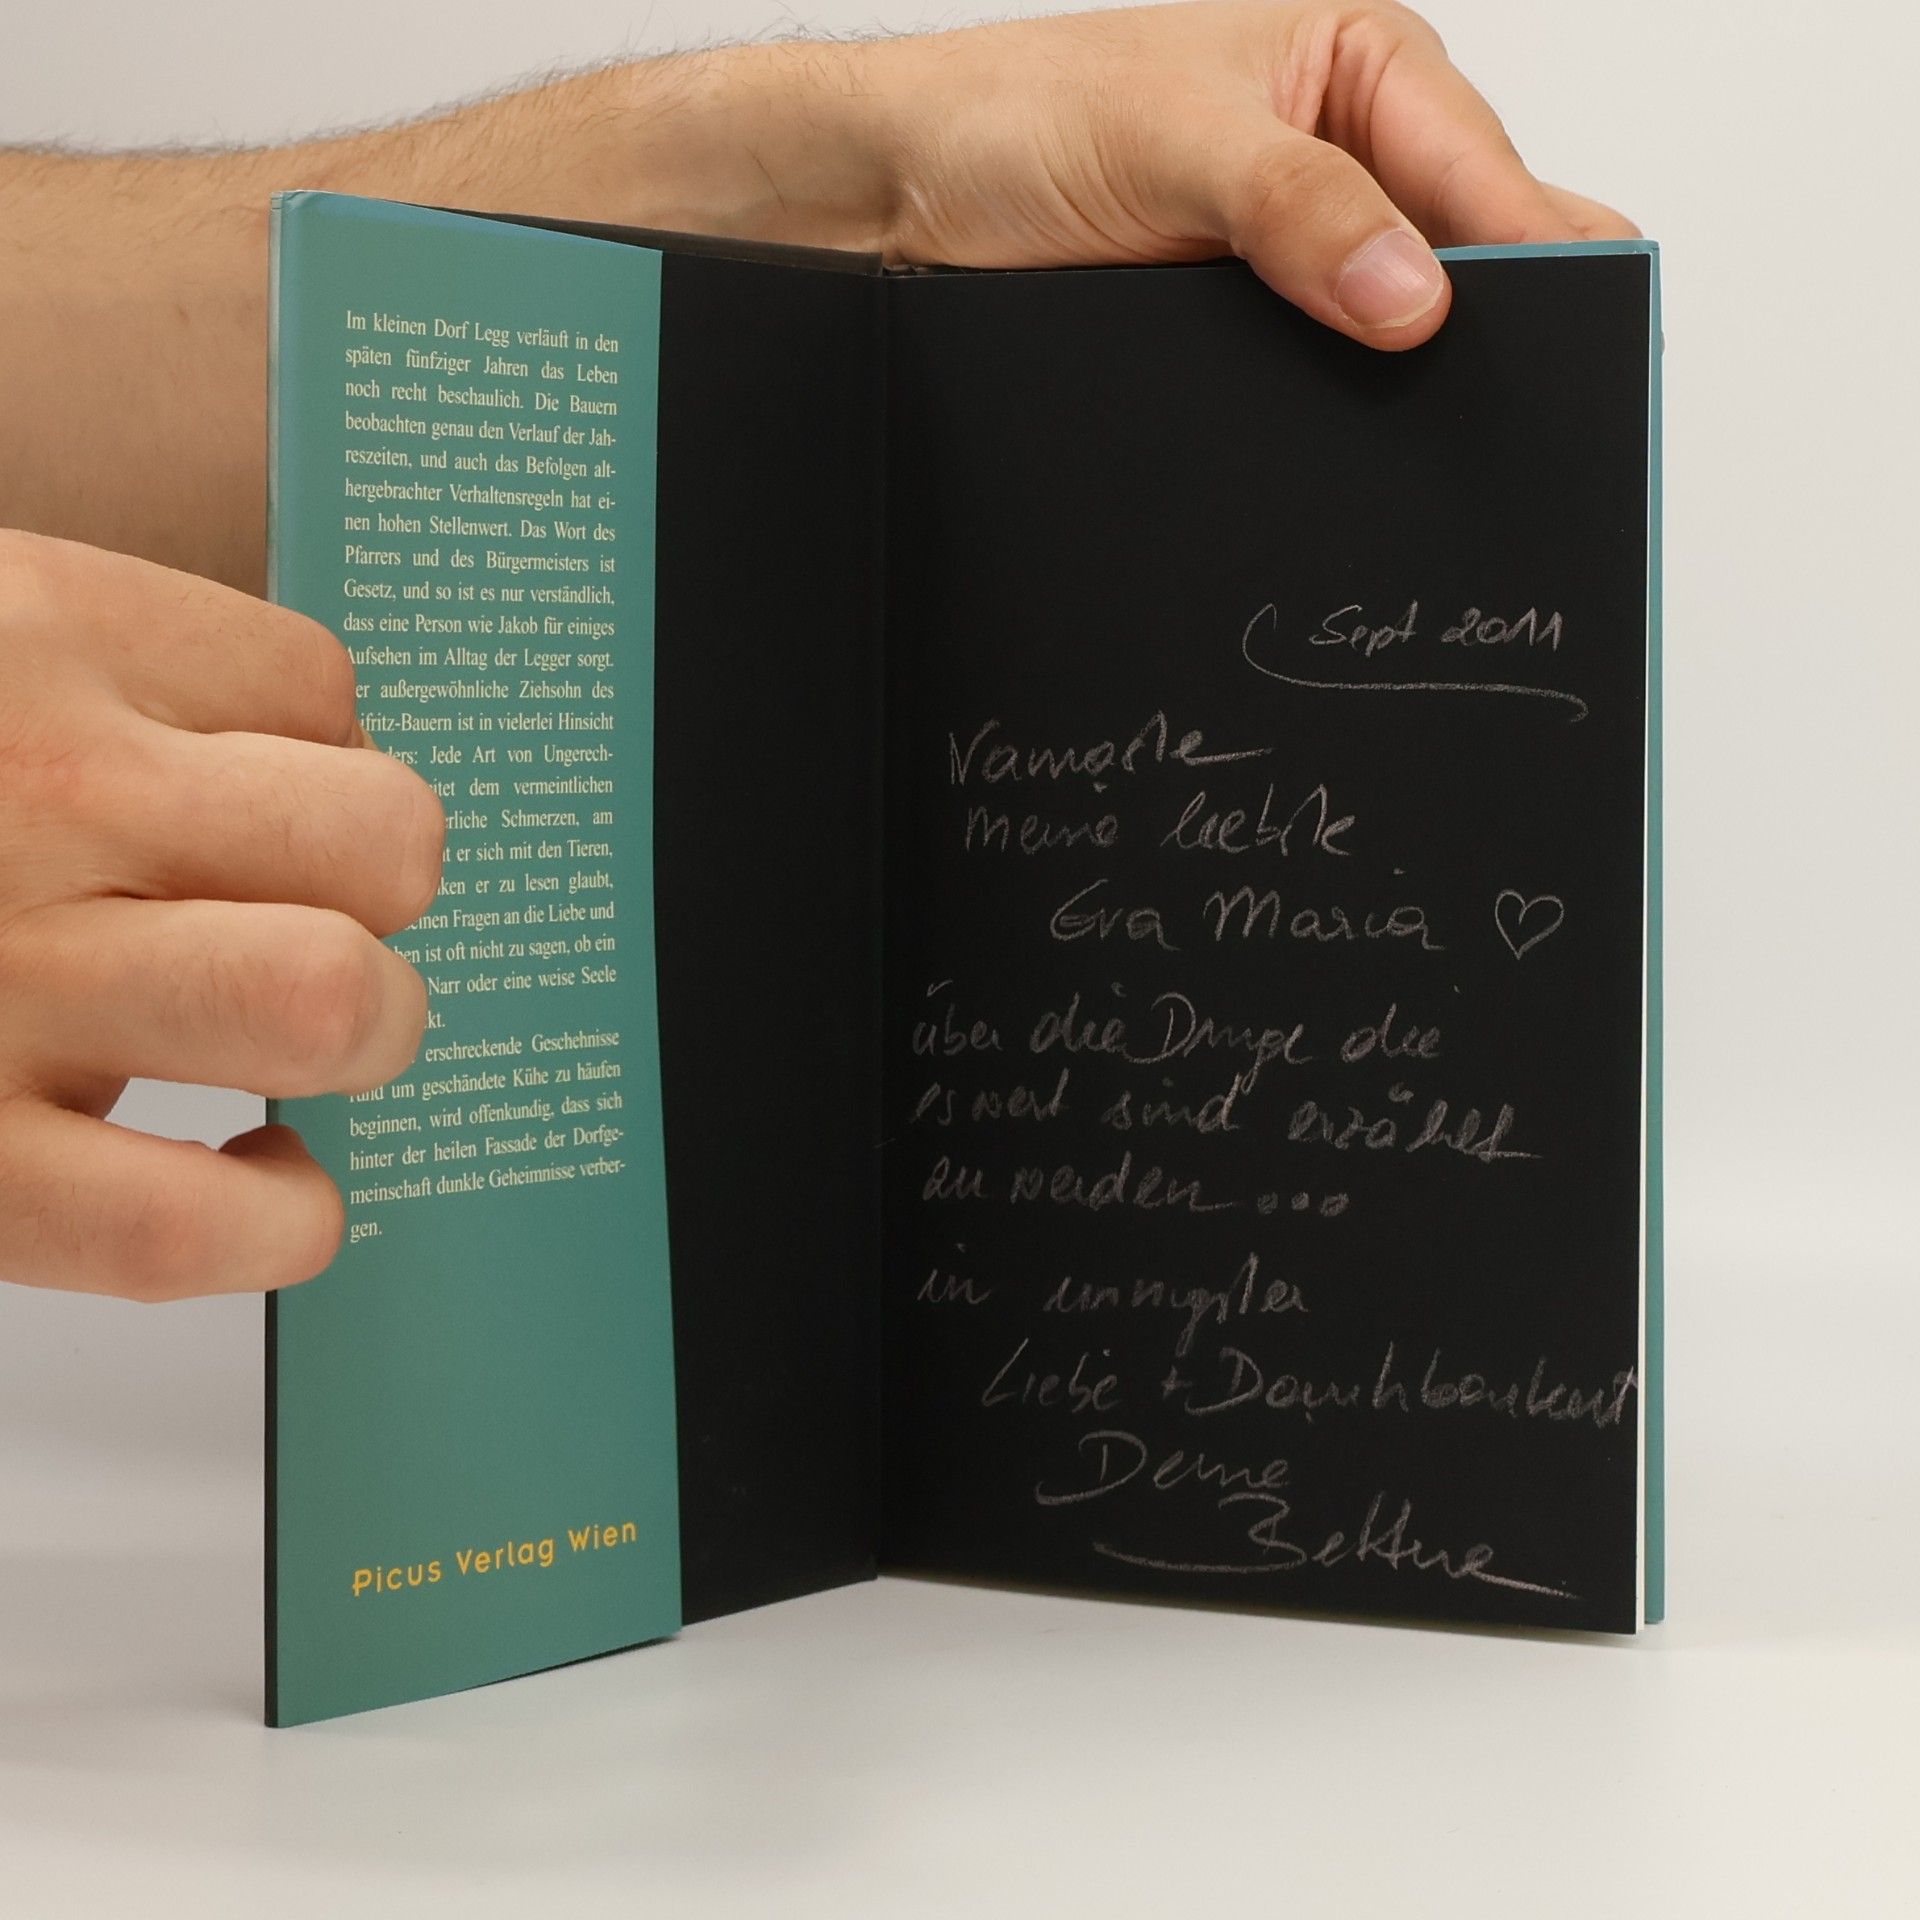 Im kleinen Dorf Legg verläuft in den
späten fünfziger Jahren das Leben
noch recht beschaulich. Die Bauern
beobachten genau den Verlauf der Jah-
reszeiten, und auch das Befolgen alt-
hergebrachter Verhaltensregeln hat ei-
nen hohen Stellenwert. Das Wort des
Pfarrers und des Bürgermeisters ist
Gesetz, und so ist es nur verständlich,
dass eine Person wie Jakob für einiges
Aufsehen im Alltag der Legger sorgt.
er außergewöhnliche Ziehsohn des
ifritz-Bauern ist in vielerlei Hinsicht
ders: Jede Art von Ungerech-
itet dem vermeintlichen
erliche Schmerzen, am
t er sich mit den Tieren,
ken er zu lesen glaubt,
einen Fragen an die Liebe und
en ist oft nicht zu sagen, ob ein
Narr oder eine weise Seele
kt.
erschreckende Geschehnisse
rund um geschändete Kühe zu häufen
beginnen, wird offenkundig, dass sich
hinter der heilen Fassade der Dorfge-
meinschaft dunkle Geheimnisse verber-
gen.
Picus Verlag Wien
Sept 2011
Namaste
meine liebste
Eva Maria ♡
über die Dinge die
es wert sind erzählt
zu werden...
in innigster
Liebe + Dankbarkeit
Deine
Bettina